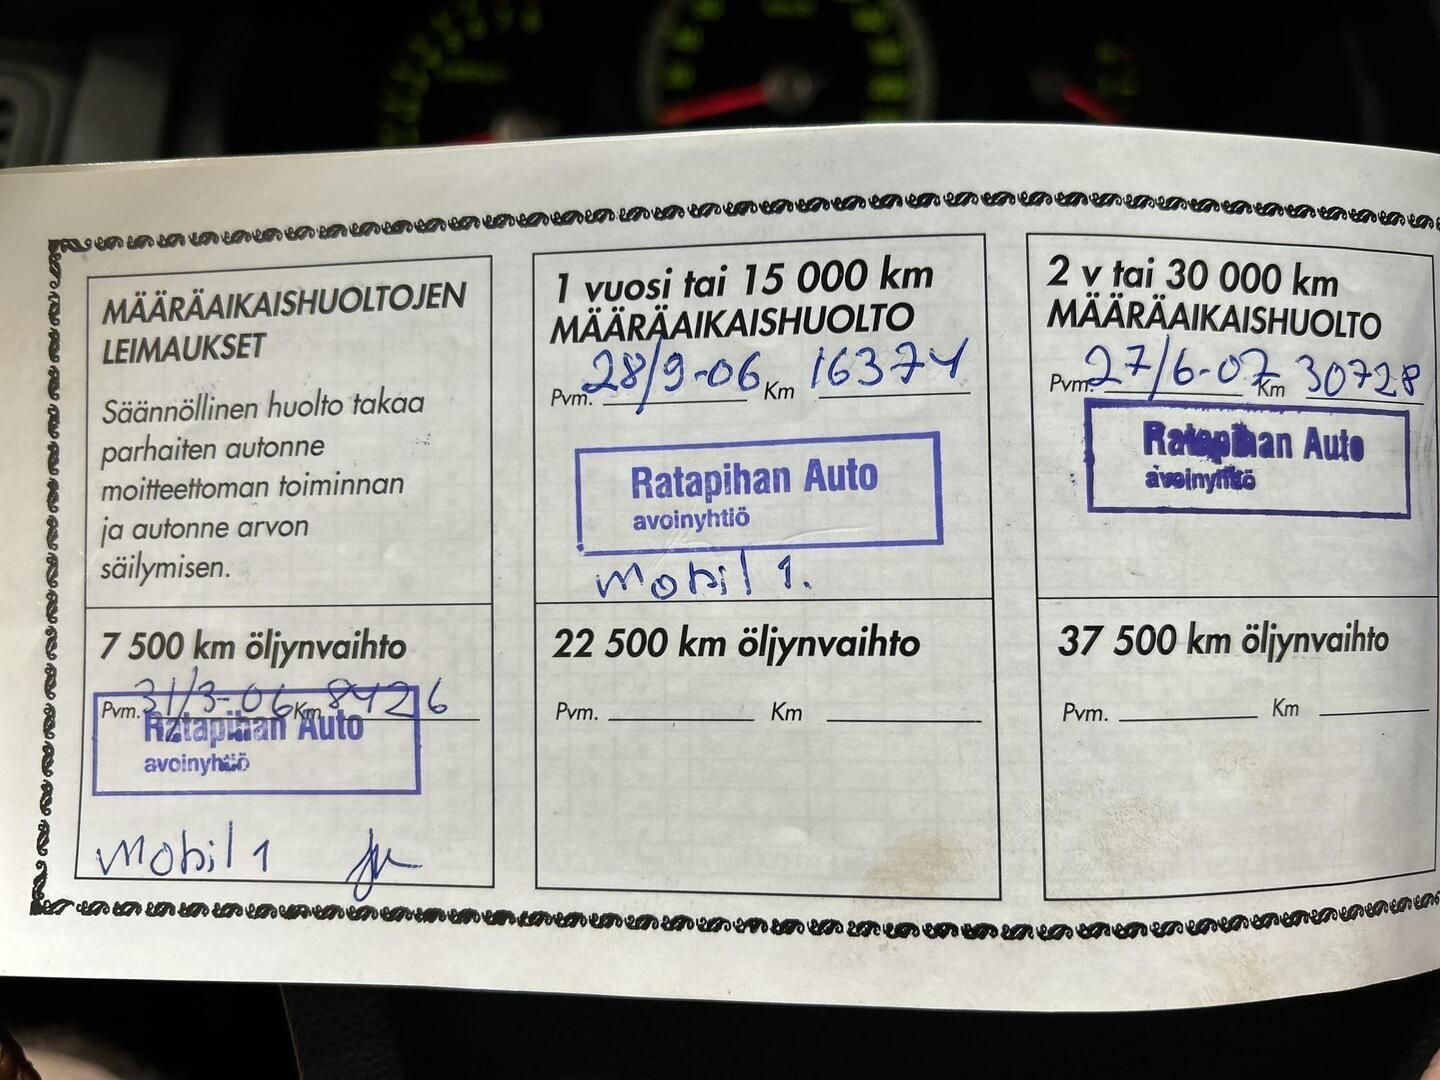 MÄÄRÄAIKAISHUOLTOJEN
LEIMAUKSET
Säännöllinen huolto takaa
parhaiten autonne
moitteettoman toiminnan
ja autonne arvon
säilymisen.
7 500 km öljynvaihto
Pvm. 31/3-06 Km 8426
Ratapihan Auto
avoinyhtiö
Mobil 1
1 vuosi tai 15 000 km
MÄÄRÄAIKAISHUOLTO
Pvm. 28/9-06 Km 16374
Ratapihan Auto
avoinyhtiö
Mobil 1.
22 500 km öljynvaihto
Pvm. Km
2 v tai 30 000 km
MÄÄRÄAIKAISHUOLTO
Pvm. 27/6-07 Km 30728
Ratapihan Auto
avoinyhtiö
37 500 km öljynvaihto
Pvm. Km